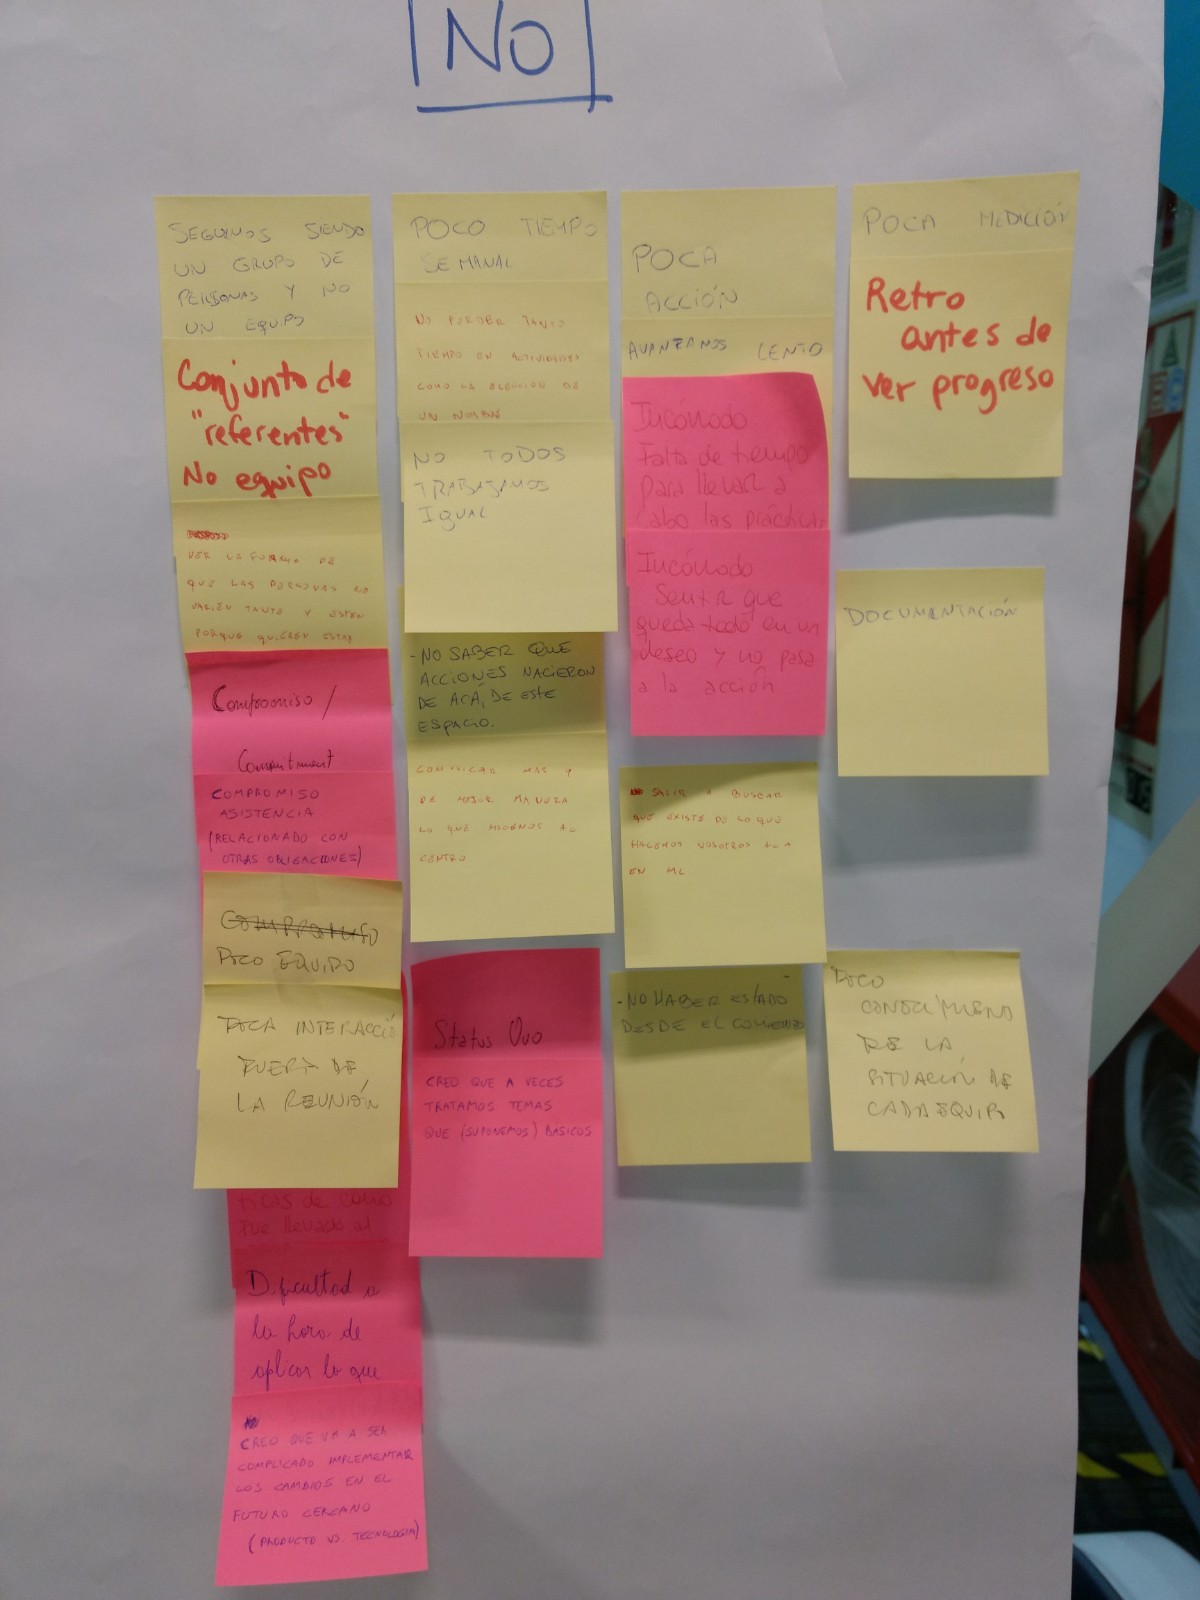 NO
SEGUIMOS SIENDO
UN GRUPO DE
PERSONAS Y NO
UN EQUIPO
Conjunto de
"referentes"
No equipo
VER LA FORMA DE
QUE LAS PERSONAS NO
VARIEN TANTO Y ESTEN
PORQUE QUIEREN ESTAR
Compromiso /
Commitment
COMPROMISO
ASISTENCIA
(RELACIONADO CON
OTRAS OBLIGACIONES)
COMPROMISO
POCO EQUIPO
POCA INTERACCIÓ
FUERA DE
LA REUNIÓN
ticas de como
fue llevado al
Dificultad a
la hora de
aplicar lo que
CREO QUE VA A SER
COMPLICADO IMPLEMENTAR
LOS CAMBIOS EN EL
FUTURO CERCANO
(PRODUCTO VS. TECNOLOGIA)
POCO TIEMPO
SEMANAL
NO PERDER TANTO
TIEMPO EN ACTIVIDADES
COMO LA ELECCION DE
UN NOMBRE
NO TODOS
TRABAJAMOS
IGUAL
-NO SABER QUE
ACCIONES NACIERON
DE ACÁ, DE ESTE
ESPACIO.
COMUNICAR MAS Y
DE MEJOR MANERA
LO QUE HACEMOS AL
CENTRO
Status Quo
CREO QUE A VECES
TRATAMOS TEMAS
QUE (SUPONEMOS) BÁSICOS
POCA
ACCIÓN
AVANZAMOS LENTO
Incómodo
Falta de tiempo
para llevar a
cabo las prácticas
Incómodo
Sentir que
queda todo en un
deseo y no pasa
a la acción
SALIR A BUSCAR
QUE EXISTE DE LO QUE
HACEMOS NOSOTROS ACA
EN ML
-NO HABER ESTADO
DESDE EL COMIENZO
POCA MEDICIÓN
Retro
antes de
ver progreso
DOCUMENTACIÓN
POCO
CONOCIMIENTO
DE LA
SITUACIÓN DE
CADA EQUIPO